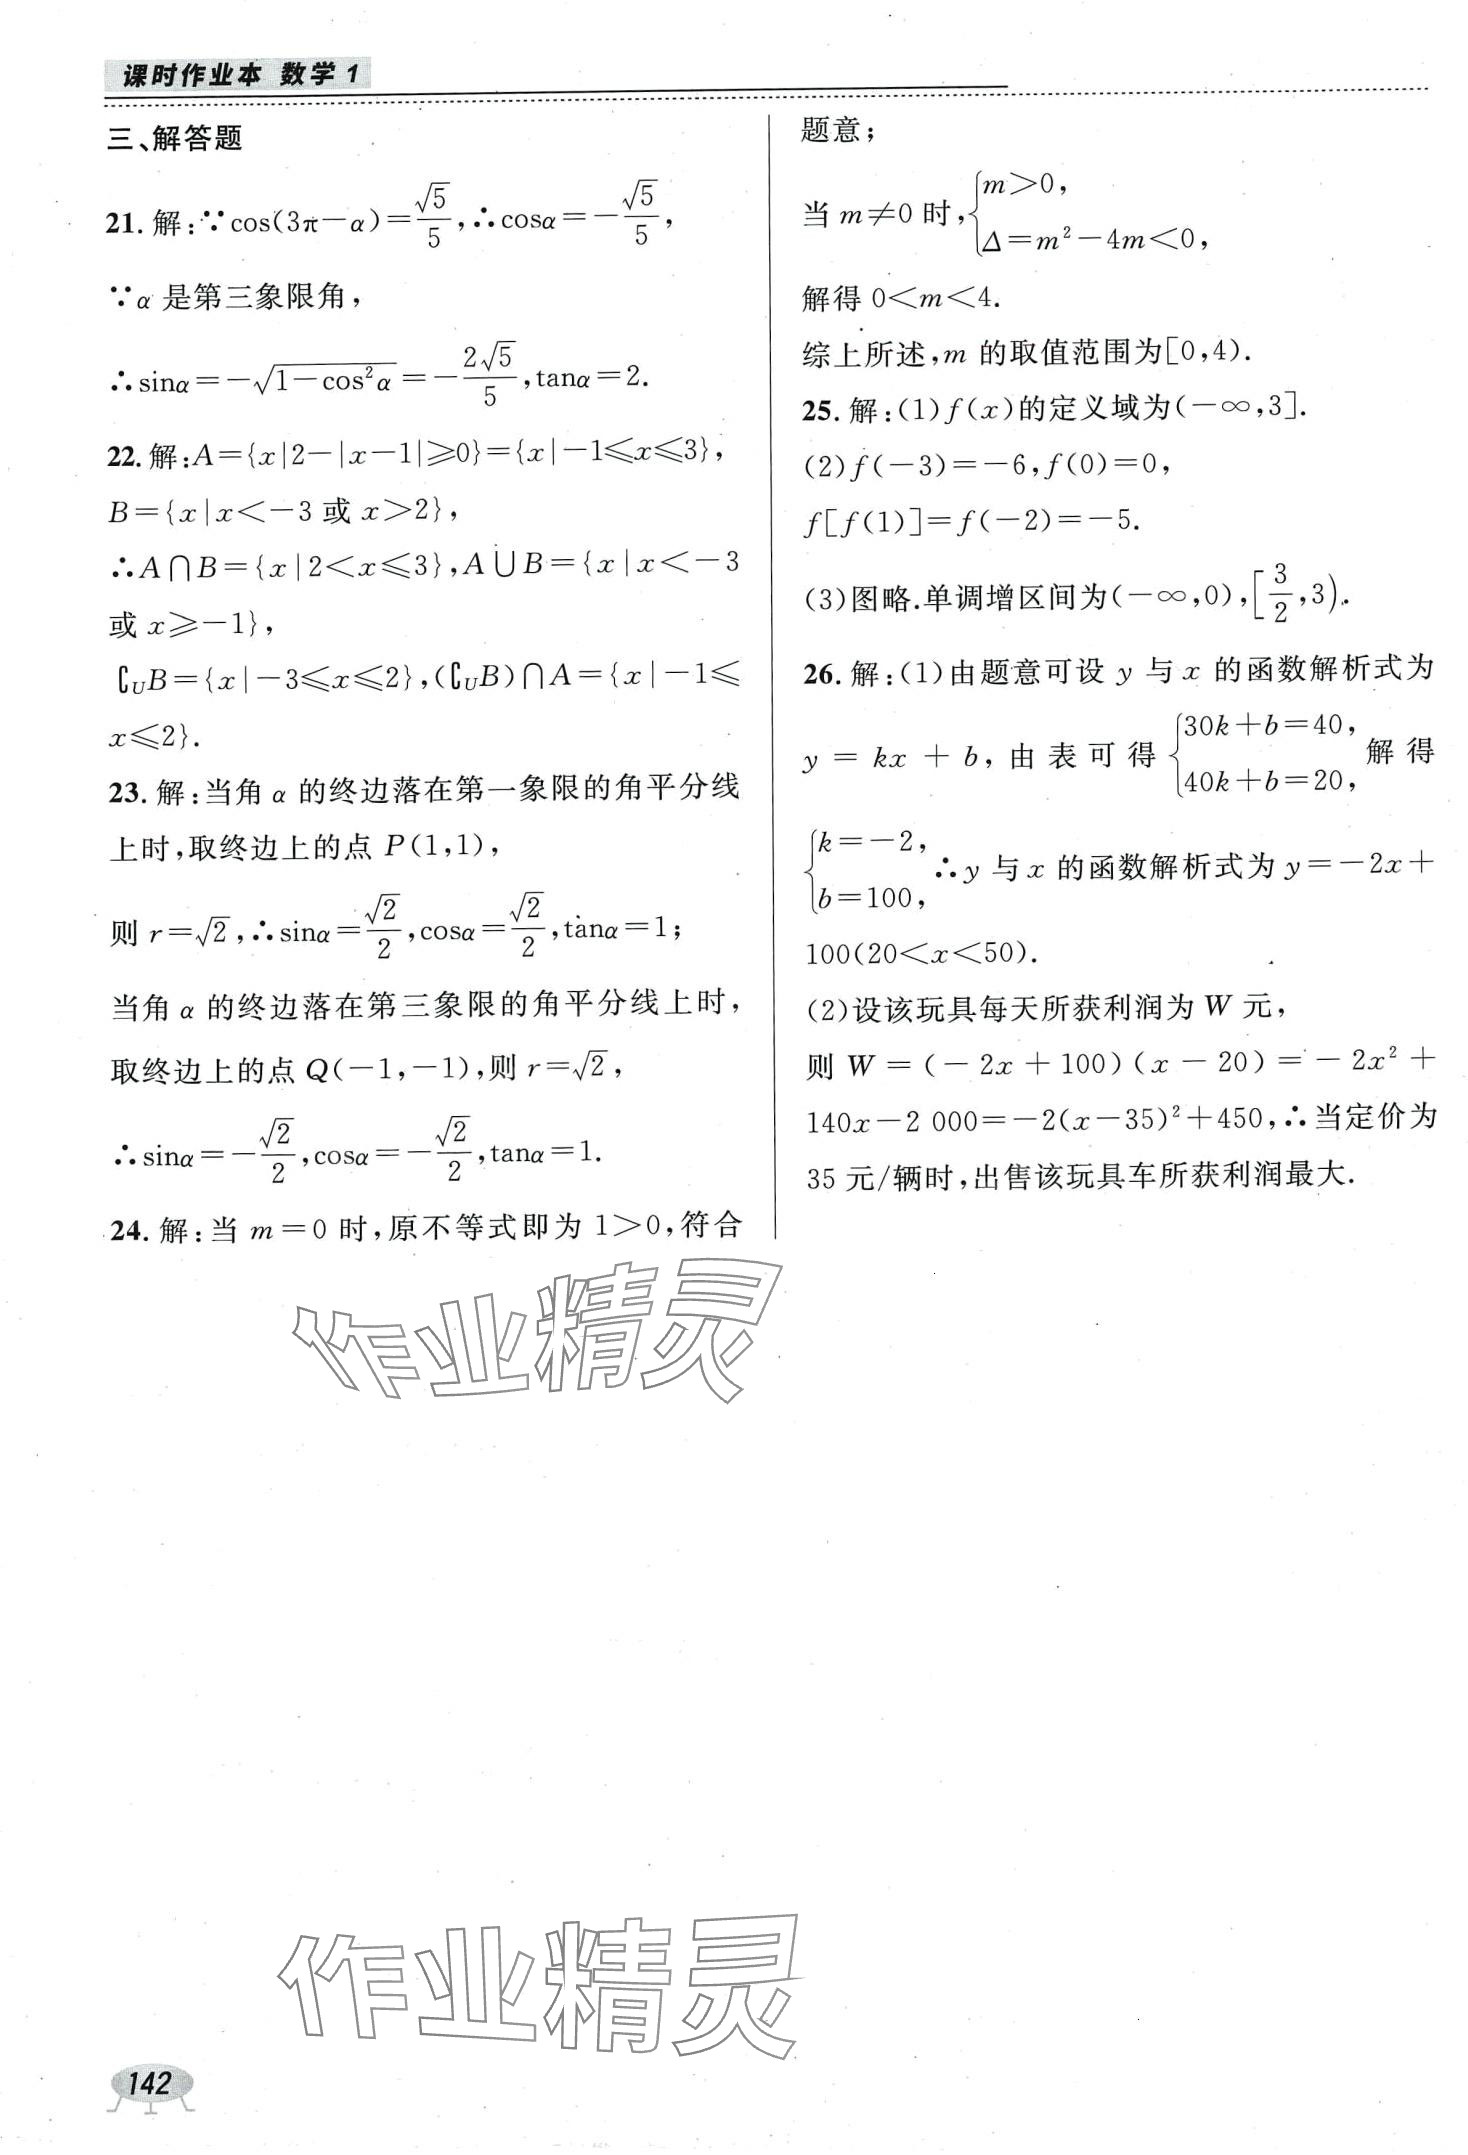 课时作业本 数学 1
三、解答题
21. 解:∵cos(3π－α)=√5/5,∴cosα=－√5/5,
∵α 是第三象限角,
∴sinα=－√(1－cos²α)=－2√5/5,tanα=2.
22. 解:A={x|2－|x－1|≥0}={x|－1≤x≤3},
B={x|x<－3 或 x>2},
∴A∩B={x|2<x≤3},A∪B={x|x<－3
或 x≥－1},
∁UB={x|－3≤x≤2},(∁UB)∩A={x|－1≤
x≤2}.
23. 解:当角 α 的终边落在第一象限的角平分线
上时,取终边上的点 P(1,1),
则 r=√2,∴sinα=√2/2,cosα=√2/2,tanα=1;
当角 α 的终边落在第三象限的角平分线上时,
取终边上的点 Q(－1,－1),则 r=√2,
∴sinα=－√2/2,cosα=－√2/2,tanα=1.
24. 解:当 m=0 时,原不等式即为 1>0,符合
题意;
当 m≠0 时,{m>0,
Δ=m²－4m<0,
解得 0<m<4.
综上所述,m 的取值范围为[0,4).
25. 解:(1)f(x)的定义域为(－∞,3].
(2)f(－3)=－6,f(0)=0,
f[f(1)]=f(－2)=－5.
(3)图略.单调增区间为(－∞,0),[3/2,3).
26. 解:(1)由题意可设 y 与 x 的函数解析式为
y=kx+b,由表可得{30k+b=40,
40k+b=20,解得
{k=－2,
b=100,∴y 与 x 的函数解析式为 y=－2x+
100(20<x<50).
(2)设该玩具每天所获利润为 W 元,
则 W=(－2x+100)(x－20)=－2x²+
140x－2 000=－2(x－35)²+450,∴当定价为
35 元/辆时,出售该玩具车所获利润最大.
作业精灵
作业精灵
142